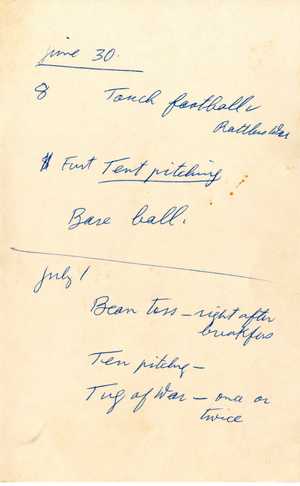 June 30.
8 Touch football
Rattlers War
First Tent pitching
Base ball.
July 1
Bean toss – right after
breakfas
Ten pitchg –
Tug of War – once or
twice